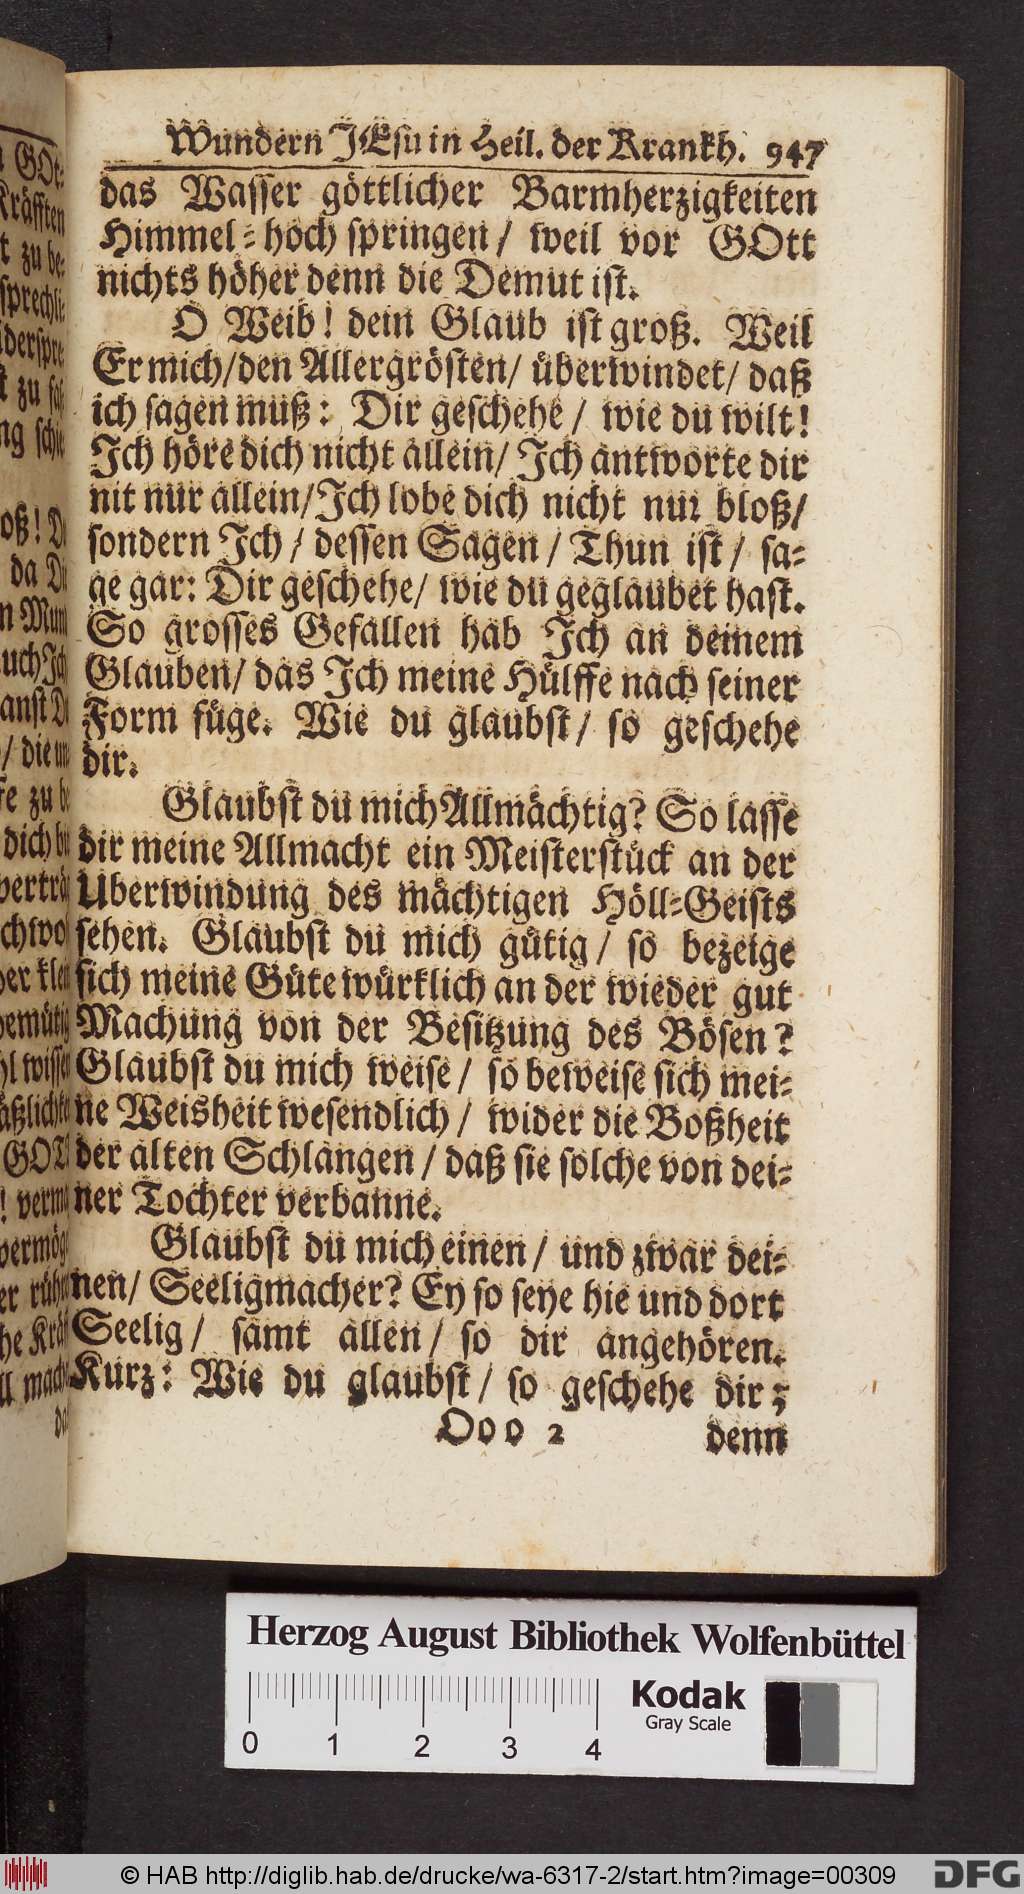 Wundern JEsu in Heil. der Krankh. 947
das Wasser göttlicher Barmherzigkeiten
Himmel=hoch springen / weil vor GOtt
nichts höher denn die Demut ist.
O Weib! dein Glaub ist groß. Weil
Er mich/den Allergrösten/ überwindet/ daß
ich sagen muß: Dir geschehe / wie du wilt!
Ich höre dich nicht allein/ Ich antworte dir
nit nur allein/Ich lobe dich nicht nur bloß/
sondern Ich / dessen Sagen / Thun ist / sa=
ge gar: Dir geschehe/ wie du geglaubet hast.
So grosses Gefallen hab Ich an deinem
Glauben/ das Ich meine Hülffe nach seiner
Form füge. Wie du glaubst / so geschehe
dir.
Glaubst du mich Allmächtig? So lasse
dir meine Allmacht ein Meisterstück an der
Uberwindung des mächtigen Höll=Geists
sehen. Glaubst du mich gütig / so bezeige
sich meine Güte würklich an der wieder gut
Machung von der Besitzung des Bösen?
Glaubst du mich weise / so beweise sich mei=
ne Weisheit wesendlich / wider die Boßheit
der alten Schlangen / daß sie solche von dei=
ner Tochter verbanne.
Glaubst du mich einen / und zwar dei=
nen/ Seeligmacher? Ey so seye hie und dort
Seelig / samt allen / so dir angehören.
Kurz: Wie du glaubst / so geschehe dir;
Ooo 2 denn
Herzog August Bibliothek Wolfenbüttel
Kodak
Gray Scale
0 1 2 3 4
© HAB http://diglib.hab.de/drucke/wa-6317-2/start.htm?image=00309
DFG